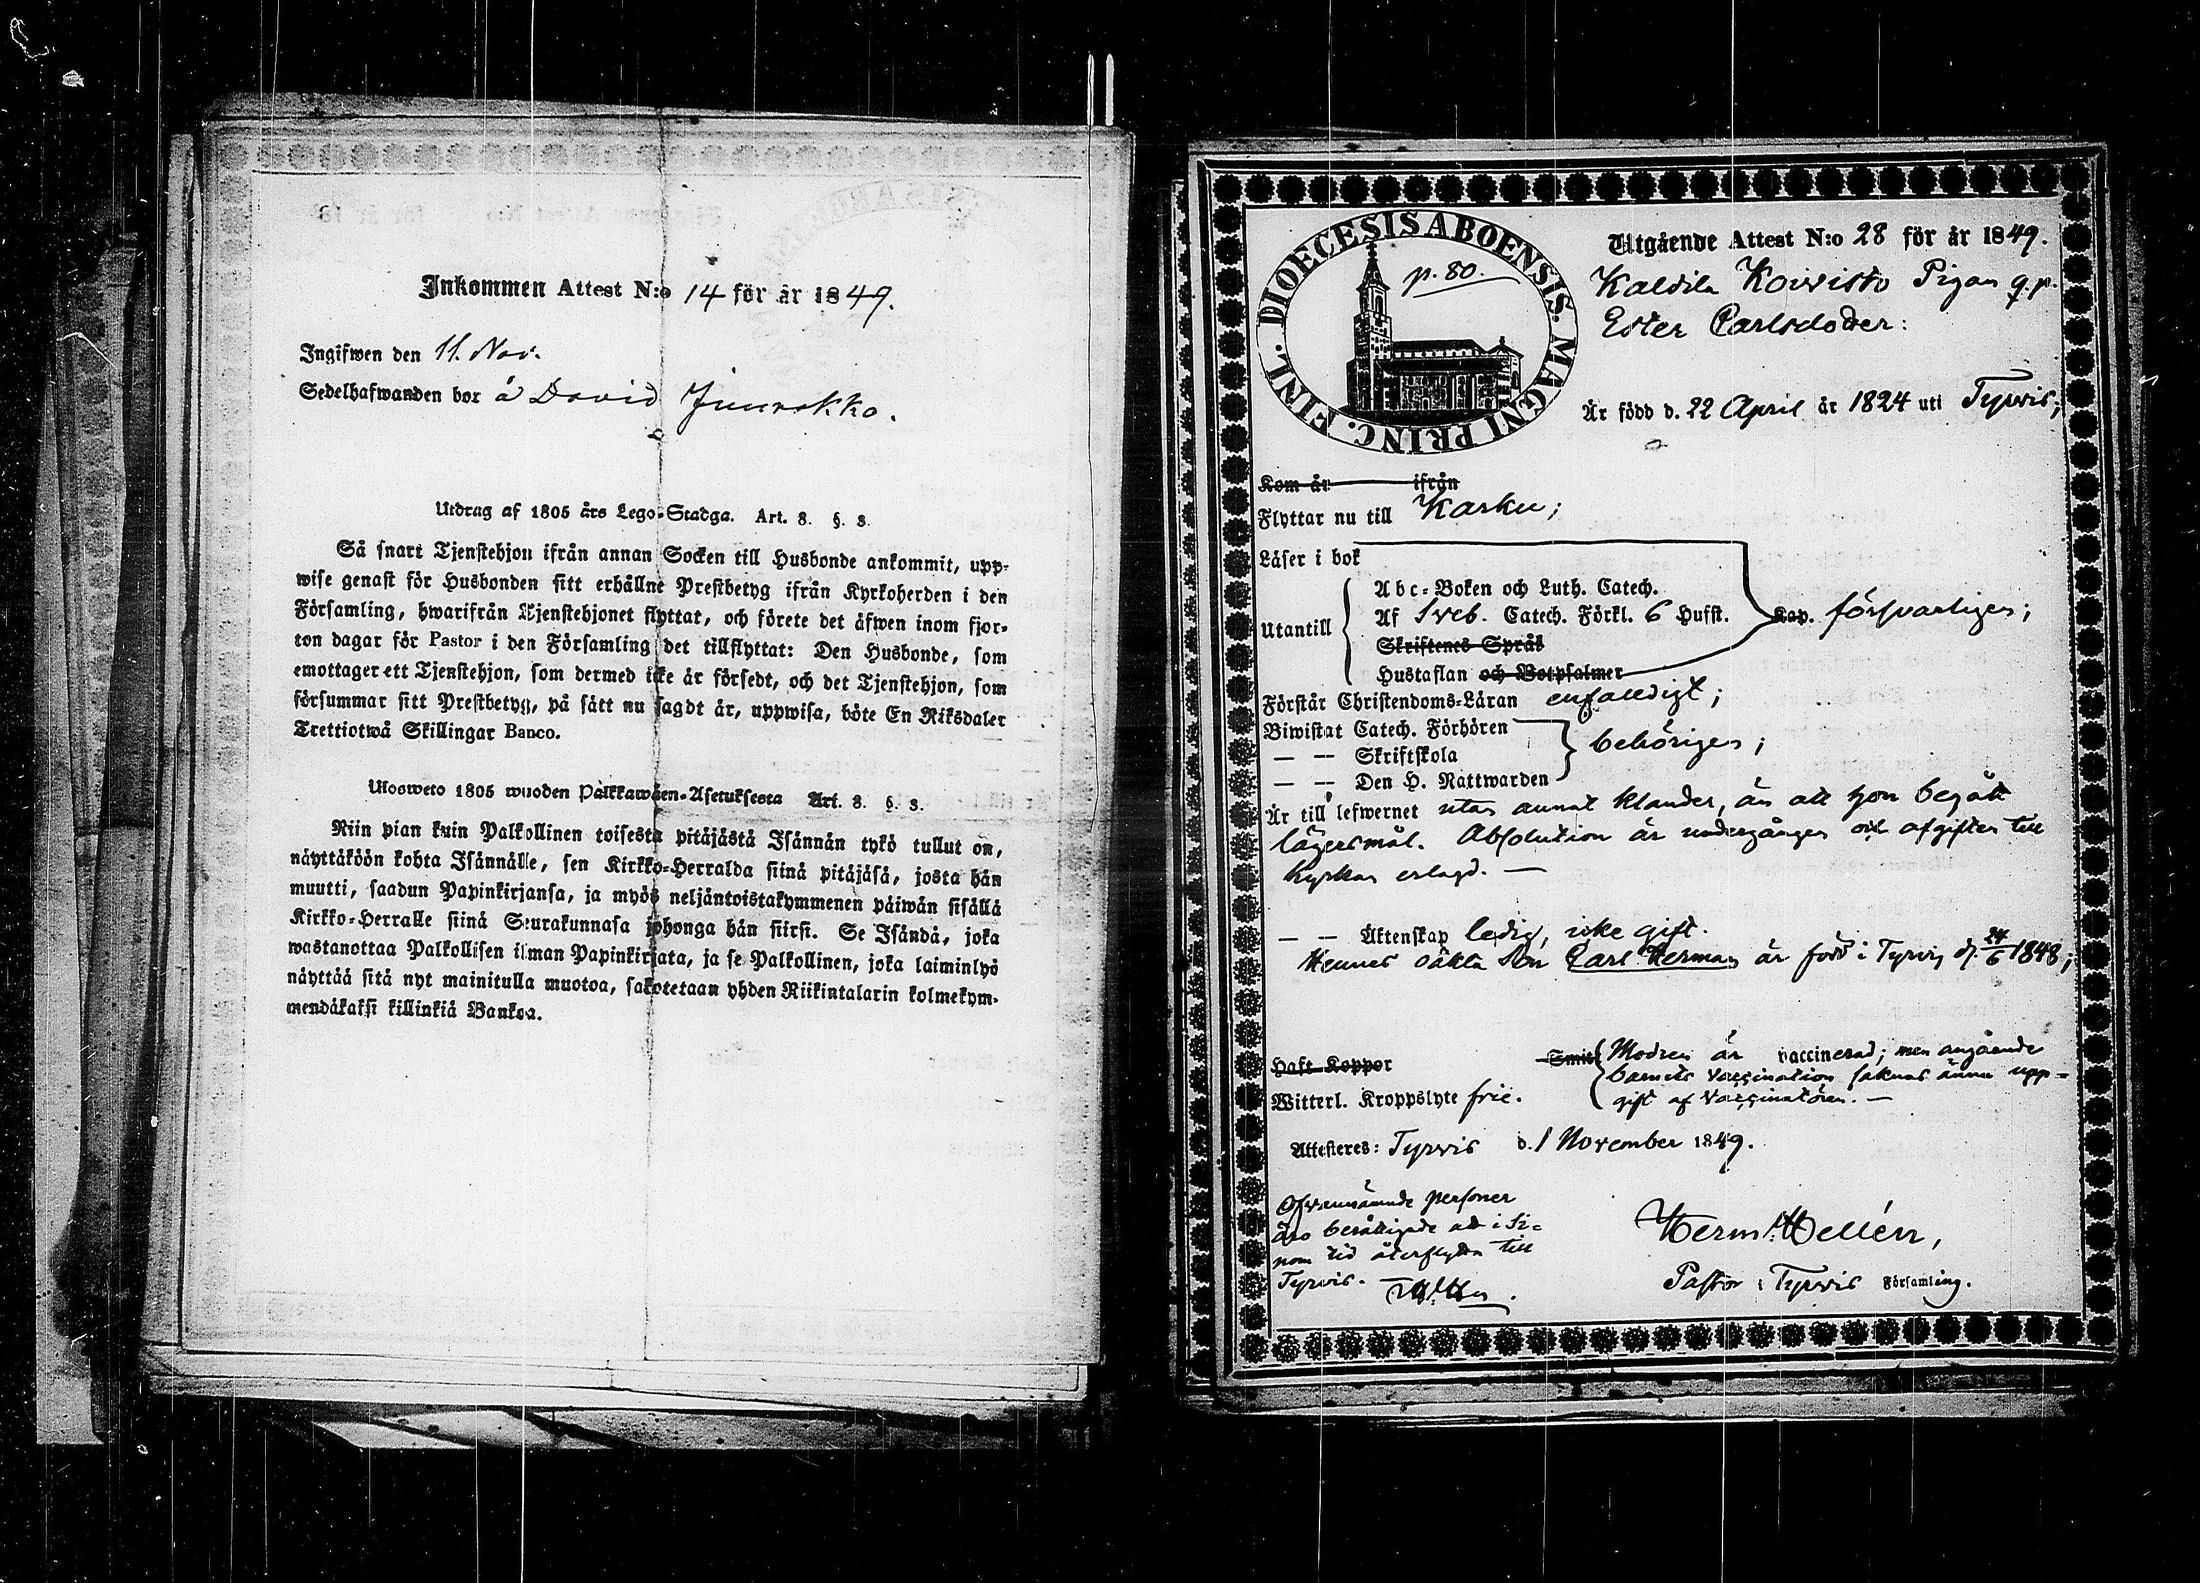 Inkommen Attest N:o 14 för år 1849.
Ingifwen den 11. Nov.
Sedelhafwanden bor å David
Utdrag af 1805 års Lego-Stadga. Art. 8. §. 8.
Så snart Tjenstehjon ifrån annan Socken till Husbonde ankommit, upp-
wise genast för Husbonden sitt erhållne Prestbetyg ifrån Kyrkoherden i den
Församling, hwarifrån Tjenstehjonet flyttat, och förete det äfwen inom fjor-
ton dagar för Pastor i den Församling det tillflyttat: Den Husbonde, som
emottager ett Tjenstehjon, som dermed icke är försedt, och det Tjenstehjon, som
försummar sitt Prestbetyg, på sätt nu sagdt är, uppwisa, böte En Riksdaler
Trettiotwå Skillingar Banco.
Ulosweto 1805 wuoden Palkkawäen-Asetuksesta Art. 8. §. 8.
Niin pian kuin Palkollinen toisesta pitäjästä Isännän tykö tullut on,
näyttäköön kohta Isännälle, sen Kirkko-Herralda siinä pitäjäsä, josta hän
muutti, saadun Papinkirjansa, ja myös neljäntoistakymmenen päiwän sisällä
Kirkko-Herralle siinä Seurakunnasa johonga hän siirsi. Se Isändä, joka
wastanottaa Palkollisen ilman Papinkirjata, ja se Palkollinen, joka laiminlyö
näyttää sitä nyt mainitulla muotoa, sakotetaan yhden Riikintalarin kolmekym-
mendäkaksi killinkiä Bankoa.
DIOECESIS ABOENSIS. MAGNI PRINC. FINL.
p. 80.
Utgående Attest N:o 28 för år 1849.
Kaldila Koivisto Pigan q.p.
Ester Carlsdoter:
Är född d. 22 April år 1824 uti Tyrvis;
Kom år ifrån
Flyttar nu till Karku;
Läser i bok
Abc-Boken och Luth. Catech.
Utantill Af Sveb. Catech. Förkl. 6 Hufst. Kap. försvarligen;
Skriftenes Språk
Hustaflan och Botpsalmer
Förstår Christendoms-Läran enfaldigt;
Biwistat Catech. Förhören
— — Skriftskola behörigen;
— — Den H. Nattwarden
Är till lefwernet utan annat klander, än att hon begått
lägersmål. Absolution är undergången och afgiften till
kyrkan erlagd. —
— — Äktenskap ledig, icke gift.
Hennes oäkta Son Carl Herman är född i Tyrvis d. 24/6 1848;
Haft Koppor
Smit Modren är vaccinerad; men angående
barnets vaccination saknas ännu upp-
gift af Vaccinatören. —
Witterl. Kroppslyte frie.
Attesteres: Tyrvis d. 1 November 1849.
Ofvannämnde personer
äro berättigade att i si-
nom tid återflytta till
Tyrvis.
Herm. Hellén,
Pastor i Tyrvis Församling.